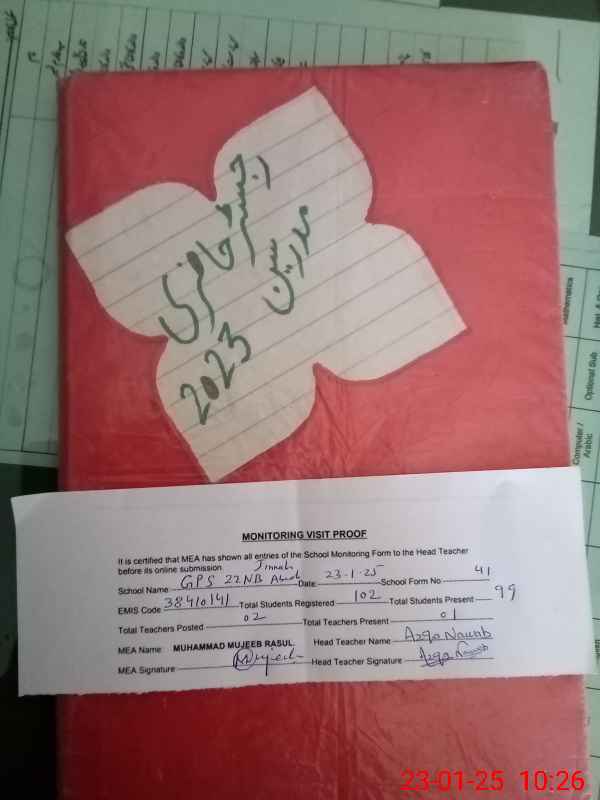 رجسٹر حاضری
مدرسین
2023
MONITORING VISIT PROOF
It is certified that MEA has shown all entries of the School Monitoring Form to the Head Teacher
before its online submission
School Name GPS 22NB Jinnah Abad Date 23-1-25 School Form No 41
EMIS Code 38410141 Total Students Registered 102 Total Students Present 99
Total Teachers Posted 02 Total Teachers Present 01
MEA Name: MUHAMMAD MUJEEB RASUL Head Teacher Name Azqa Nawab
MEA Signature Mujeeb Head Teacher Signature Azqa Nawab
Mathematics
Optional Sub
Computer /
Arabic
23-01-25 10:26